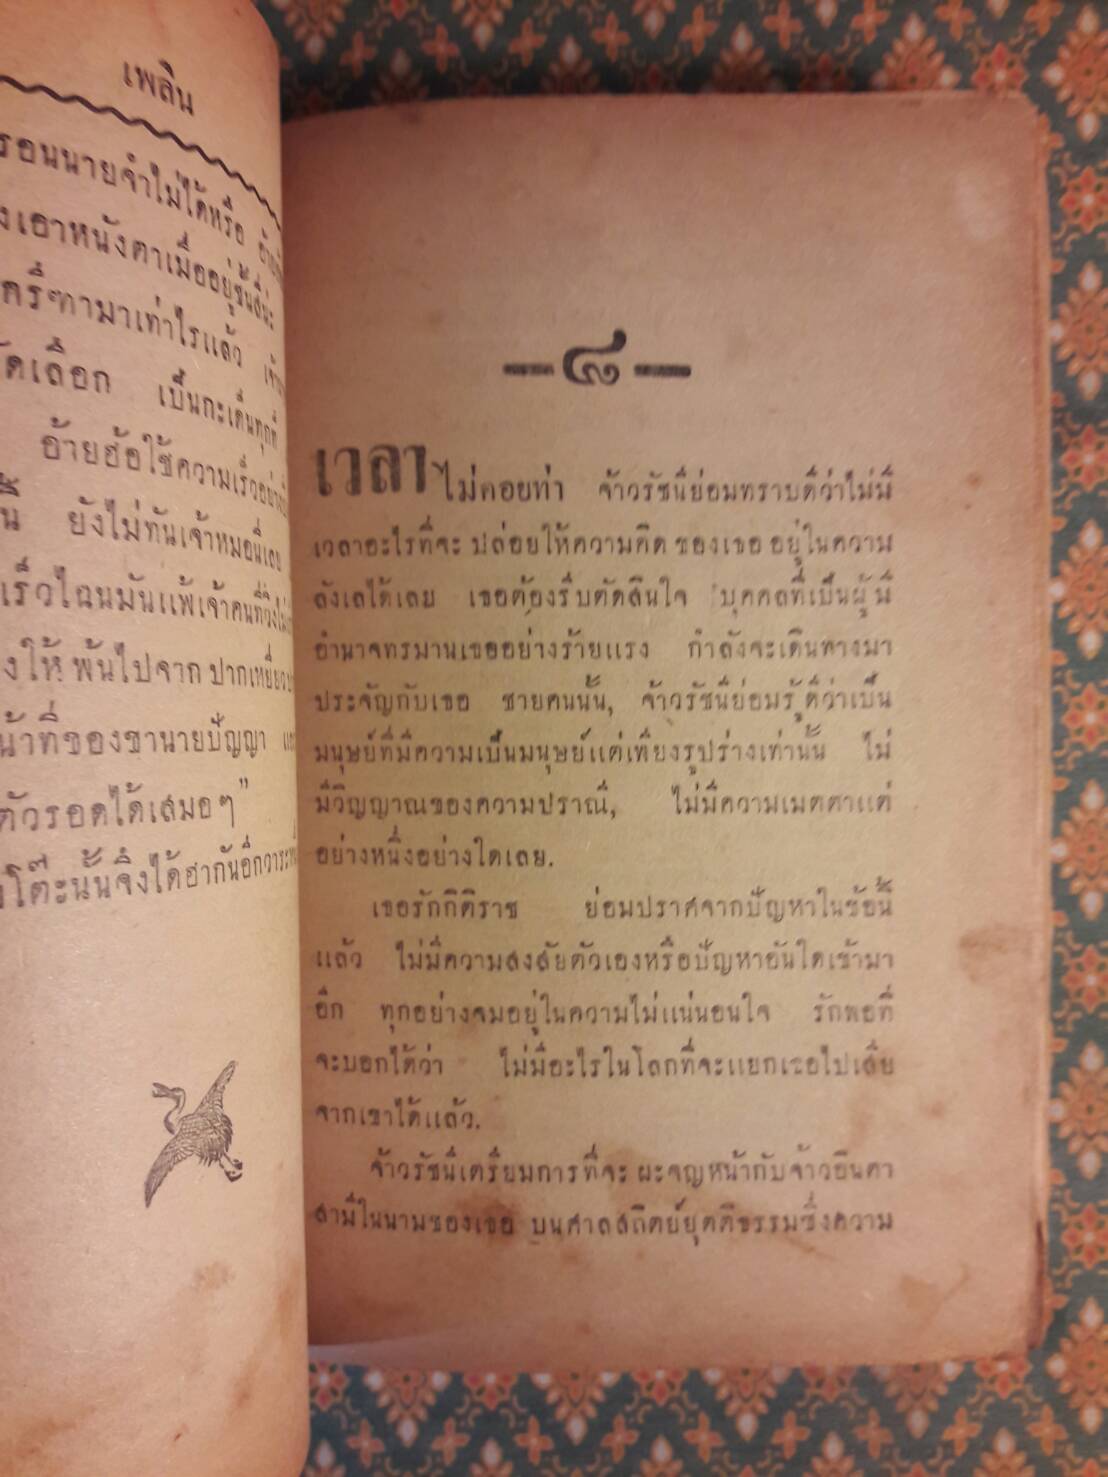 เพลิน
รอนนายจำไม่ได้หรือ
งเอาหนังตาเมื่ออยู่ชั้นสี่น่ะ
ครีฑามาเท่าไรแล้ว
ัดเลือก เป็นกะเด็นทุกที
อ้ายฮ้อใช้ความเร็วอย่าง
ยังไม่ทันเจ้าหมอนี่เลย
เร็วไฉนมันแพ้เจ้าคนที่วิ่งไม่
งให้ พ้นไปจาก ปากเหยี่ยว
น้าที่ของขานายปัญญา
ตัวรอดได้เสมอๆ”
โต๊ะนั้นจึงได้ฮากันอีกวาระ
—๘—
เวลา ไม่คอยท่า จ้าวรัชนีย่อมทราบดีว่าไม่มี
เวลาอะไรที่จะ ปล่อยให้ความคิด ของเธอ อยู่ในความ
ลังเลได้เลย เธอต้องรีบตัดสินใจ บุคคลที่เป็นผู้มี
อำนาจทรมานเธออย่างร้ายแรง กำลังจะเดินทางมา
ประจัญกับเธอ ชายคนนั้น, จ้าวรัชนีย่อมรู้ดีว่าเป็น
มนุษย์ที่มีความเป็นมนุษย์แต่เพียงรูปร่างเท่านั้น ไม่
มีวิญญาณของความปราณี, ไม่มีความเมตตาแต่
อย่างหนึ่งอย่างใดเลย.
เธอรักกิติราช ย่อมปราศจากปัญหาในข้อนี้
แล้ว ไม่มีความสงสัยตัวเองหรือปัญหาอันใดเข้ามา
อีก ทุกอย่างจมอยู่ในความไม่แน่นอนใจ รักพอที่
จะบอกได้ว่า ไม่มีอะไรในโลกที่จะแยกเธอไปเสีย
จากเขาได้แล้ว.
จ้าวรัชนีเตรียมการที่จะ ผะจญหน้ากับจ้าวอินตา
สามีในนามของเธอ บนศาลสถิตย์ยุตติธรรมซึ่งความ